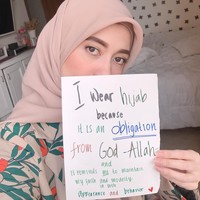 I wear hijab
because
it is an obligation
from God - Allah
and
it reminds me to maintain
my faith and modesty
in both
appearance and behavior